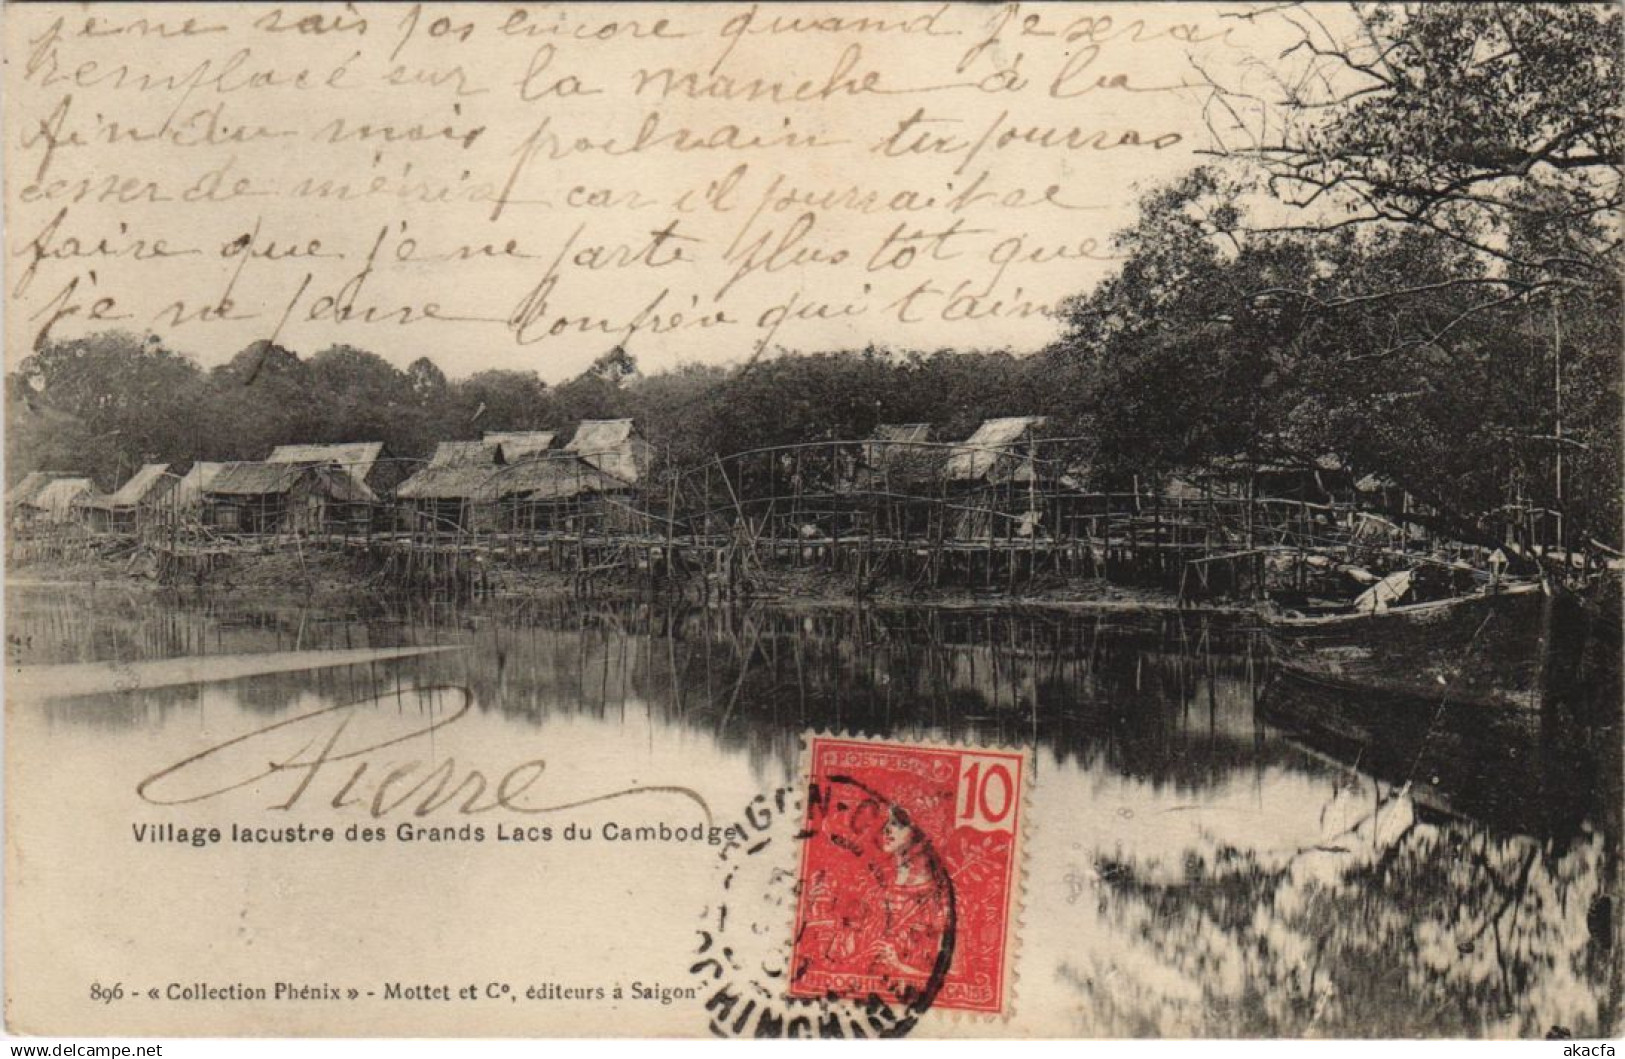 je ne sais pas encore quand je serai
remplacé sur la manche à la
fin du mois prochain tu pourras
cesser de car il pourrait se
faire que je ne parte plus tôt que
je ne pense qui t'aime
Pierre
Village lacustre des Grands Lacs du Cambodge
POSTES
10
INDOCHINE FRANÇAISE
SAIGON-CENTRAL
COCHINCHINE
896 - « Collection Phénix » - Mottet et Cº, éditeurs à Saigon
www.delcampe.net
akacfa